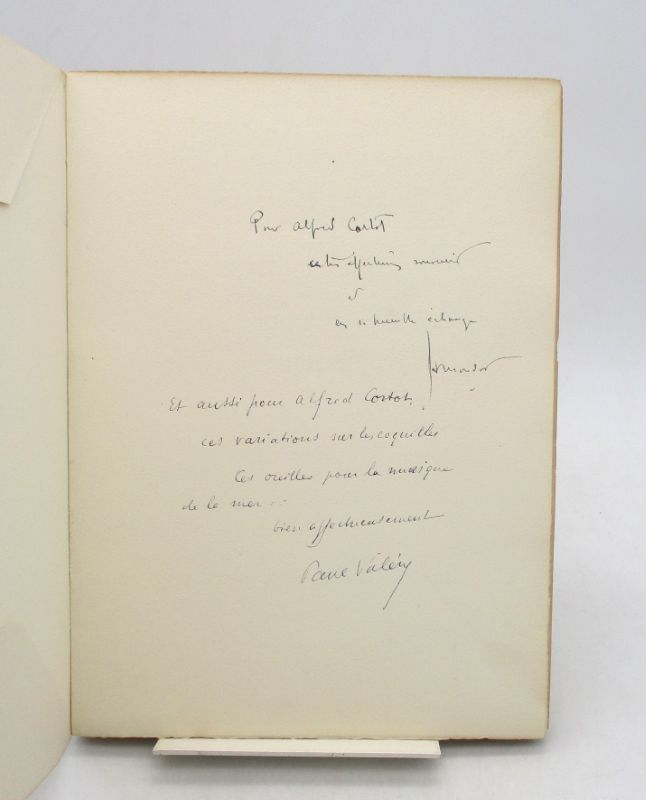 Pour Alfred Cortot
souvenir
et
en humble échange
Et aussi pour Alfred Cortot,
ces variations sur les coquilles
les oreilles pour la musique
de la mer...
bien affectueusement
Paul Valéry